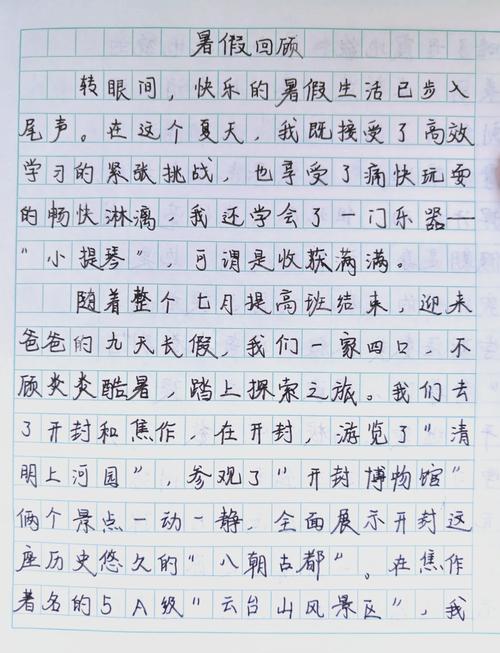 暑假回顾
转眼间，快乐的暑假生活已步入
尾声。在这个夏天，我既接受了高效
学习的紧张挑战，也享受了痛快玩耍
的畅快淋漓，我还学会了一门乐器——
“小提琴”，可谓是收获满满。
随着整个七月提高班结束，迎来
爸爸的九天长假，我们一家四口，不
顾炎炎酷暑，踏上探索之旅。我们去
了开封和焦作，在开封，游览了“清
明上河园”，参观了“开封博物馆”
俩个景点一动一静，全面展示开封这
座历史悠久的“八朝古都”。在焦作
著名的5A级“云台山风景区”，我